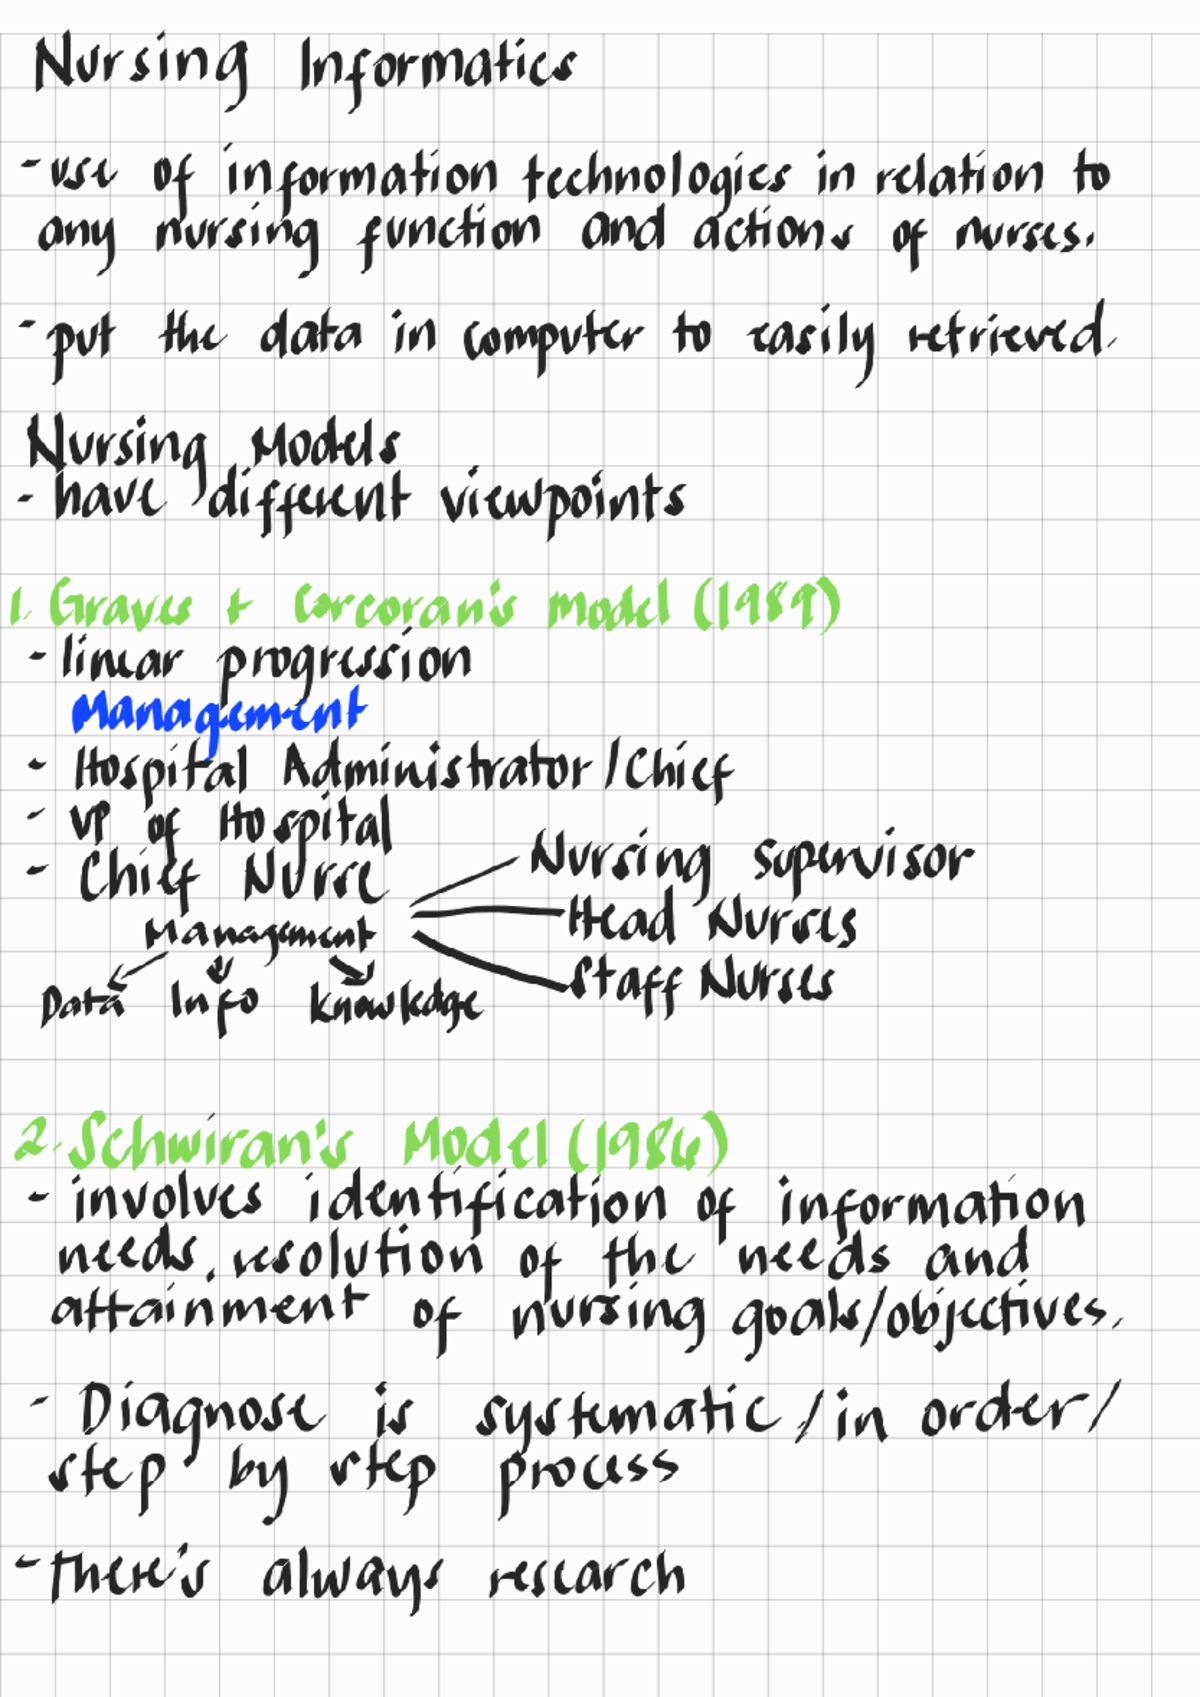 Nursing Informatics
- use of information technologies in relation to
any nursing function and actions of nurses.
- put the data in computer to easily retrieved.
Nursing Models
- have different viewpoints
1. Graves + Corcoran's model (1989)
- linear progression
Management
- Hospital Administrator/Chief
- VP of Hospital
- Chief Nurse
Nursing Supervisor
Head Nurses
Staff Nurses
Management
Data Info Knowledge
2. Schwiran's Model (1986)
- involves identification of information
needs, resolution of the needs and
attainment of nursing goals/objectives.
- Diagnose is systematic / in order /
step by step process
- there's always research